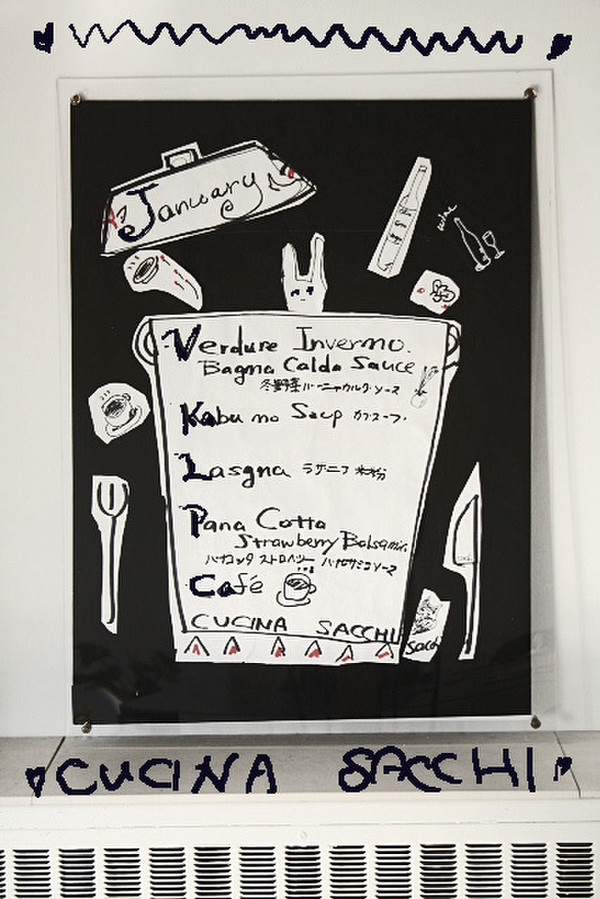 January
wine
Verdure Invermo.
Bagna Calda Sauce
冬野菜バーニャカルダソース
Kabu no Soup カブスープ.
Lasgna ラザニア 米粉
Pana Cotta
Strawberry Balsamic
パナコッタ ストロベリー バルサミコソース
Café
CUCINA SACCHI
CUCINA SACCHI